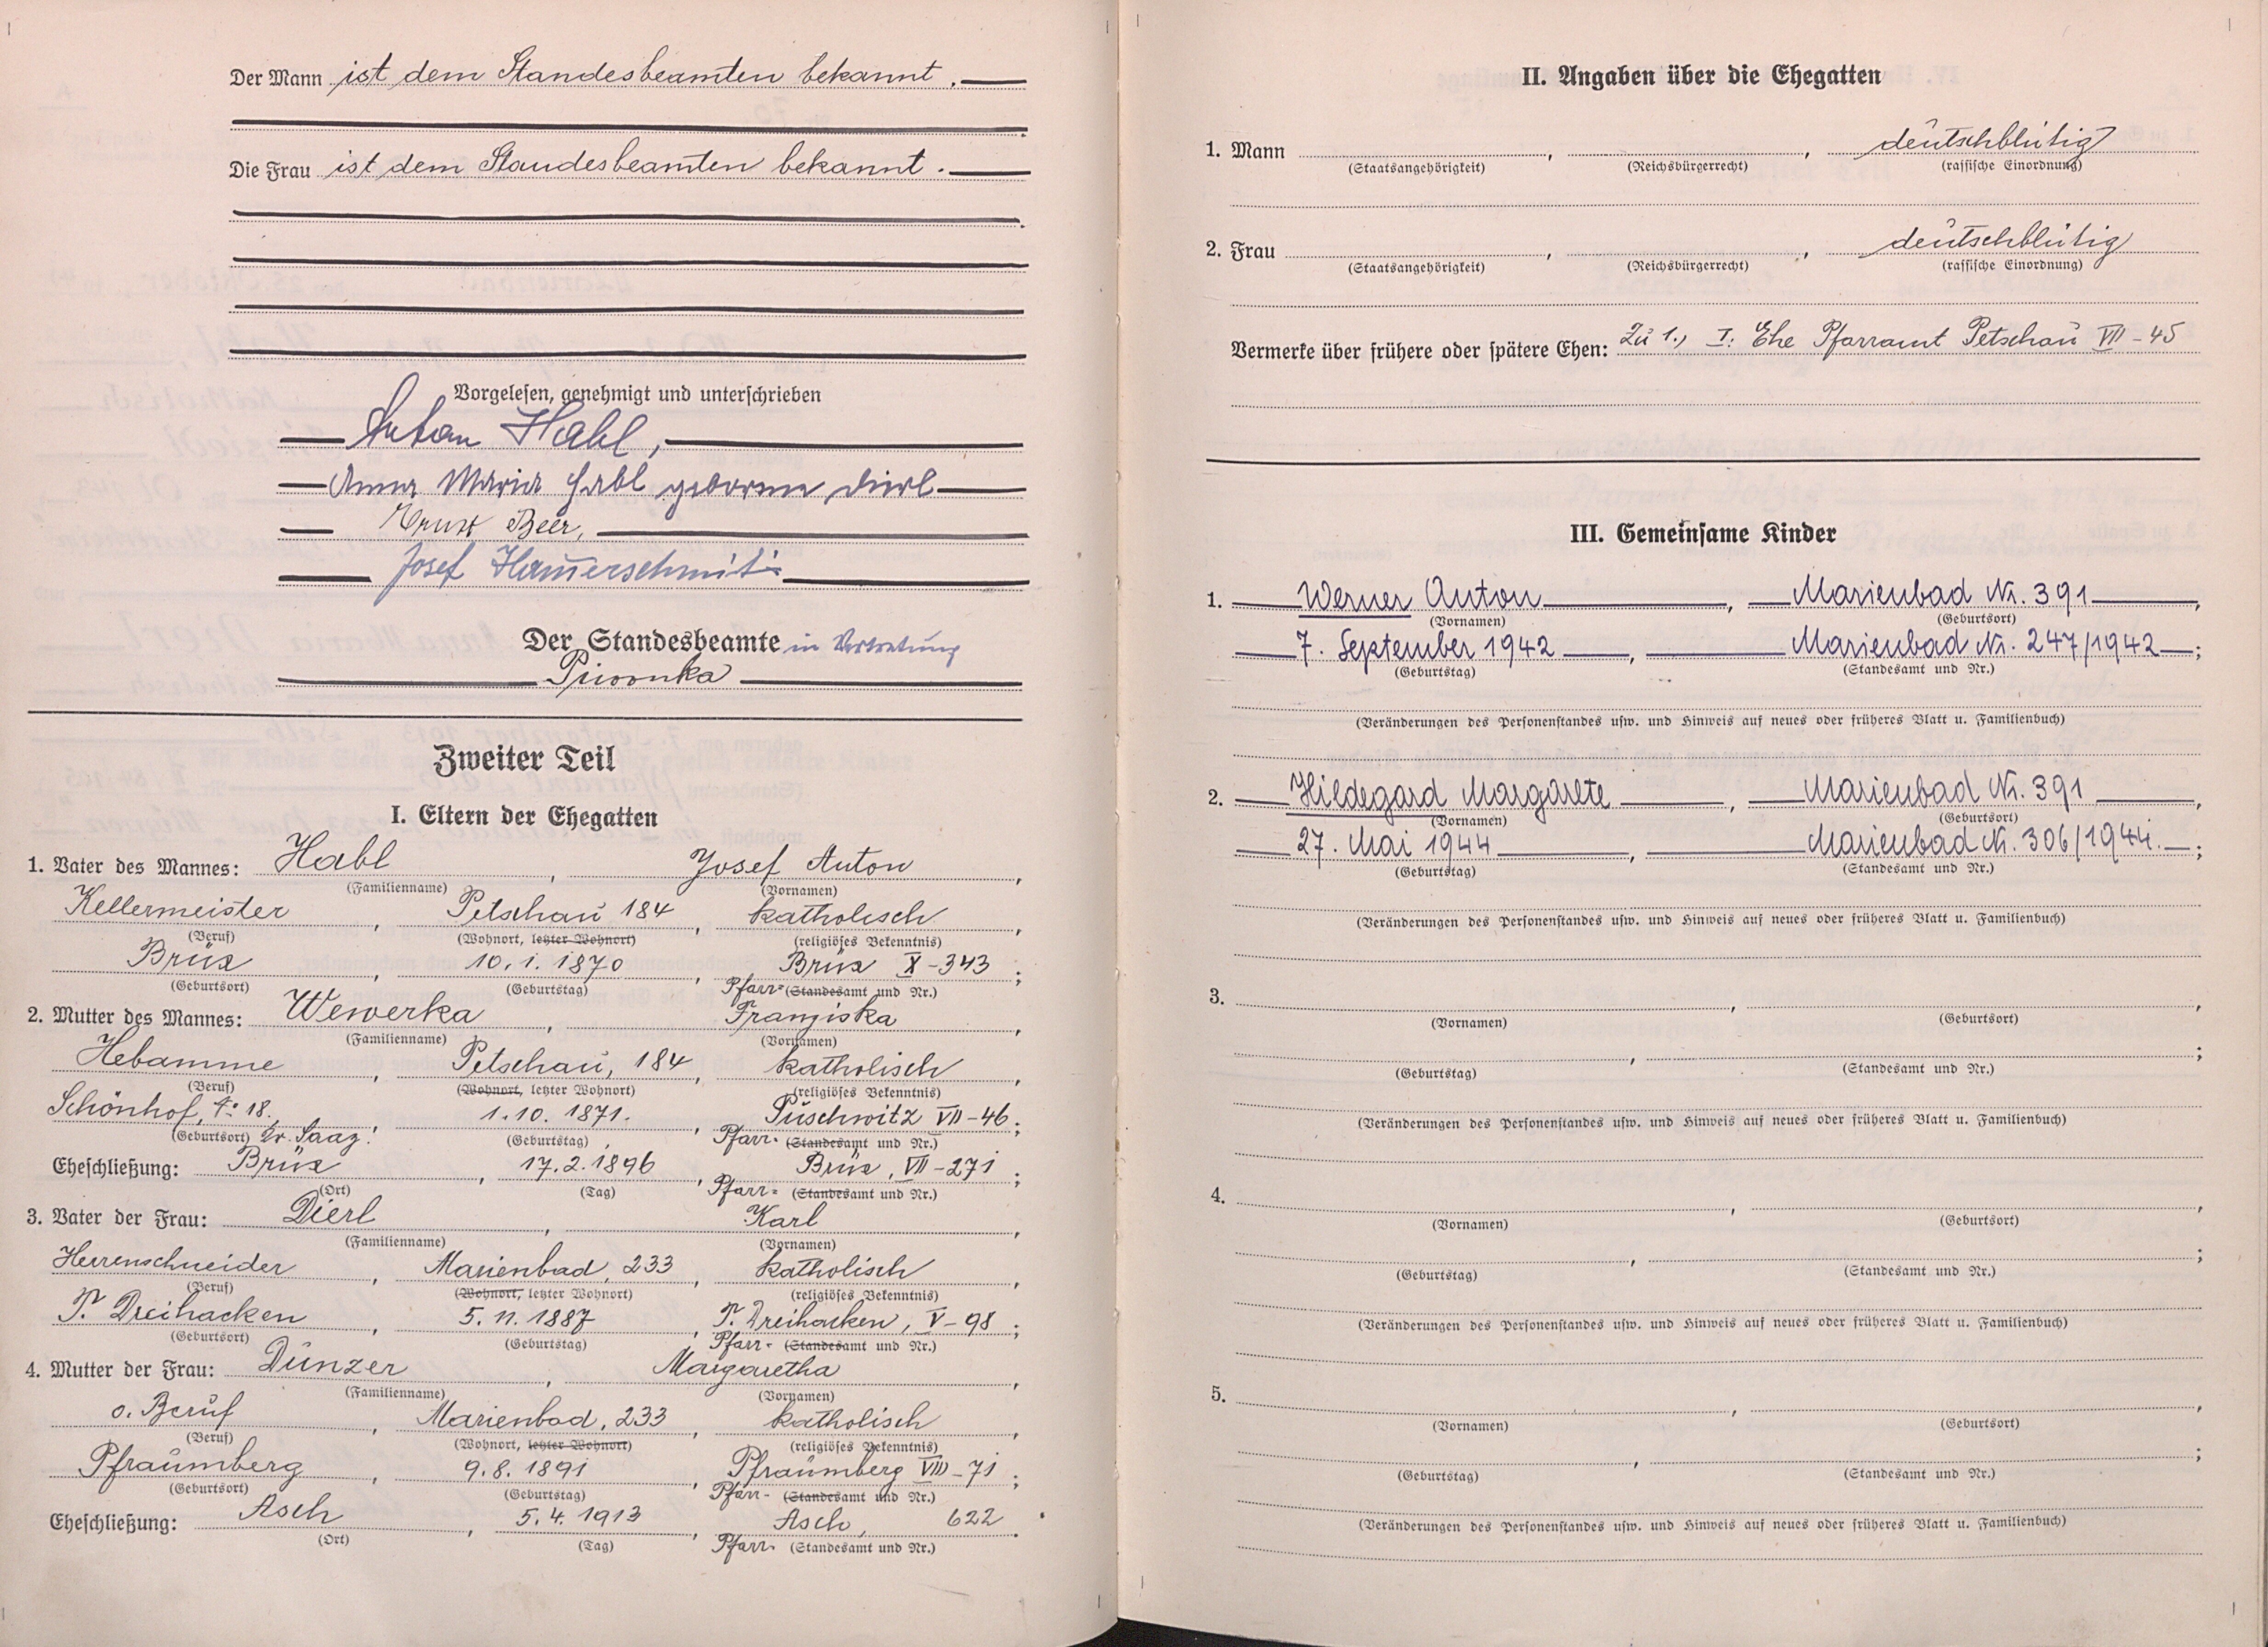 Der Mann ist dem Standesbeamten bekannt.
Die Frau ist dem Standesbeamten bekannt.
Vorgelesen, genehmigt und unterschrieben
Anton Habl,
Anna Maria Habl geborene Dierl
Ernst Beer,
Josef Hamerschmit
Der Standesbeamte in Vertretung
Zweiter Teil
I. Eltern der Ehegatten
1. Vater des Mannes: Habl, Josef Anton,
(Familienname) (Vornamen)
Kellermeister, Petschau 184, katholisch,
(Beruf) (Wohnort, letzter Wohnort) (religiöses Bekenntnis)
Brüx, 10.1.1870, Brüx X-343;
(Geburtsort) (Geburtstag) Pfarr- (Standesamt und Nr.)
2. Mutter des Mannes: Wewerka, Franziska,
(Familienname) (Vornamen)
Hebamme, Petschau, 184, katholisch,
(Beruf) (Wohnort, letzter Wohnort) (religiöses Bekenntnis)
Schönhof, N: 18., 1.10.1871., Puschwitz VII-46;
(Geburtsort) Kr. Saaz. (Geburtstag) Pfarr- (Standesamt und Nr.)
Eheschließung: Brüx, 17.2.1896, Brüx, VII-271;
(Ort) (Tag) Pfarr- (Standesamt und Nr.)
3. Vater der Frau: Dierl, Karl,
(Familienname) (Vornamen)
Herrenschneider, Marienbad, 233, katholisch,
(Beruf) (Wohnort, letzter Wohnort) (religiöses Bekenntnis)
T. Dreihacken, 5.11.1887, T. Dreihacken, V-98;
(Geburtsort) (Geburtstag) Pfarr- (Standesamt und Nr.)
4. Mutter der Frau: Dünzer, Margaretha,
(Familienname) (Vornamen)
o. Beruf, Marienbad, 233, katholisch,
(Beruf) (Wohnort, letzter Wohnort) (religiöses Bekenntnis)
Pfraumberg, 9.8.1891, Pfraumberg VIII-71;
(Geburtsort) (Geburtstag) Pfarr- (Standesamt und Nr.)
Eheschließung: Asch, 5.4.1913, Asch, 622.
(Ort) (Tag) Pfarr- (Standesamt und Nr.)
II. Angaben über die Ehegatten
1. Mann , , deutschblütig
(Staatsangehörigkeit) (Reichsbürgerrecht) (rassische Einordnung)
2. Frau , , deutschblütig
(Staatsangehörigkeit) (Reichsbürgerrecht) (rassische Einordnung)
Vermerke über frühere oder spätere Ehen: Zu 1., I: Ehe Pfarramt Petschau VII-45
III. Gemeinsame Kinder
1. Werner Anton, Marienbad Nr. 391,
(Vornamen) (Geburtsort)
7. September 1942, Marienbad Nr. 247/1942;
(Geburtstag) (Standesamt und Nr.)
(Veränderungen des Personenstandes usw. und Hinweis auf neues oder früheres Blatt u. Familienbuch)
2. Hildegard Margarete, Marienbad Nr. 391,
(Vornamen) (Geburtsort)
27. Mai 1944, Marienbad Nr. 306/1944.;
(Geburtstag) (Standesamt und Nr.)
(Veränderungen des Personenstandes usw. und Hinweis auf neues oder früheres Blatt u. Familienbuch)
3. , ,
(Vornamen) (Geburtsort)
, ;
(Geburtstag) (Standesamt und Nr.)
(Veränderungen des Personenstandes usw. und Hinweis auf neues oder früheres Blatt u. Familienbuch)
4. , ,
(Vornamen) (Geburtsort)
, ;
(Geburtstag) (Standesamt und Nr.)
(Veränderungen des Personenstandes usw. und Hinweis auf neues oder früheres Blatt u. Familienbuch)
5. , ,
(Vornamen) (Geburtsort)
, ;
(Geburtstag) (Standesamt und Nr.)
(Veränderungen des Personenstandes usw. und Hinweis auf neues oder früheres Blatt u. Familienbuch)